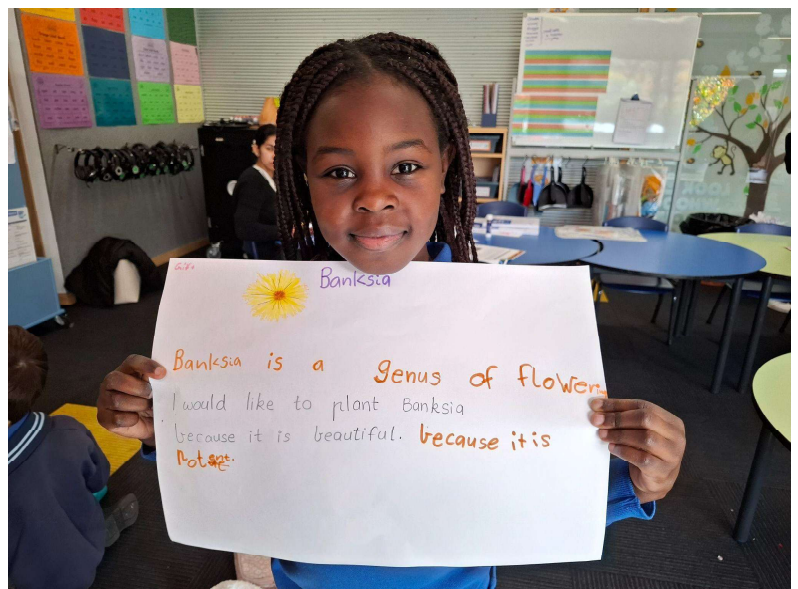 Banksia
Banksia is a genus of flowerin
I would like to plant Banksia
because it is beautiful. because it is